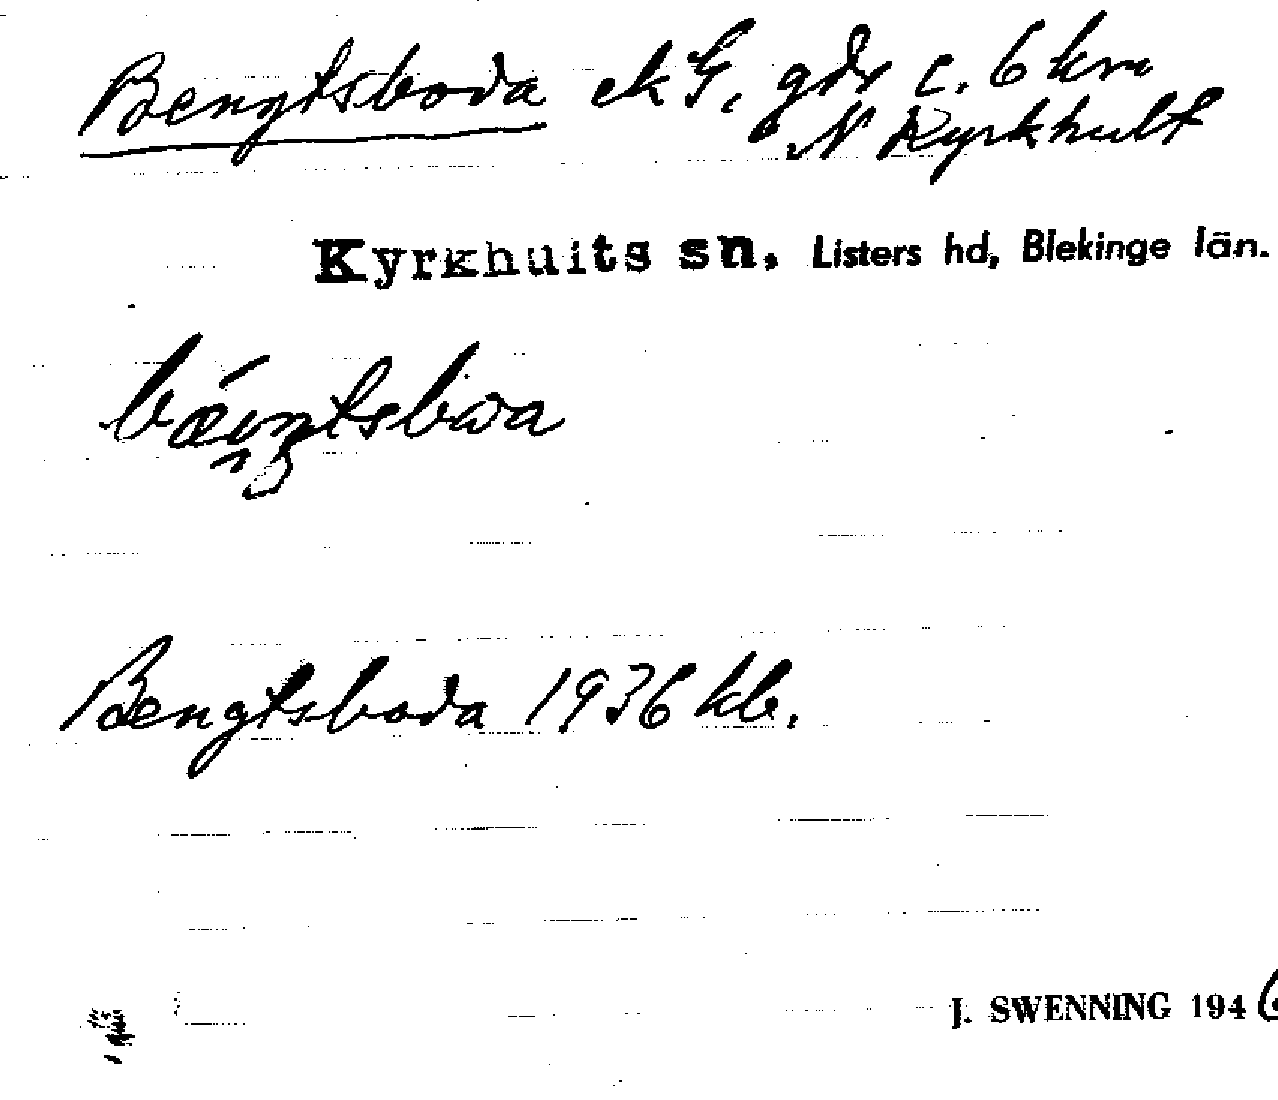 Bengtsboda ek G, gdr c. 6 km
N Kyrkhult
Kyrkhults sn. Listers hd, Blekinge län.
Bengtsboda 1936 kb.
J. SWENNING 1946